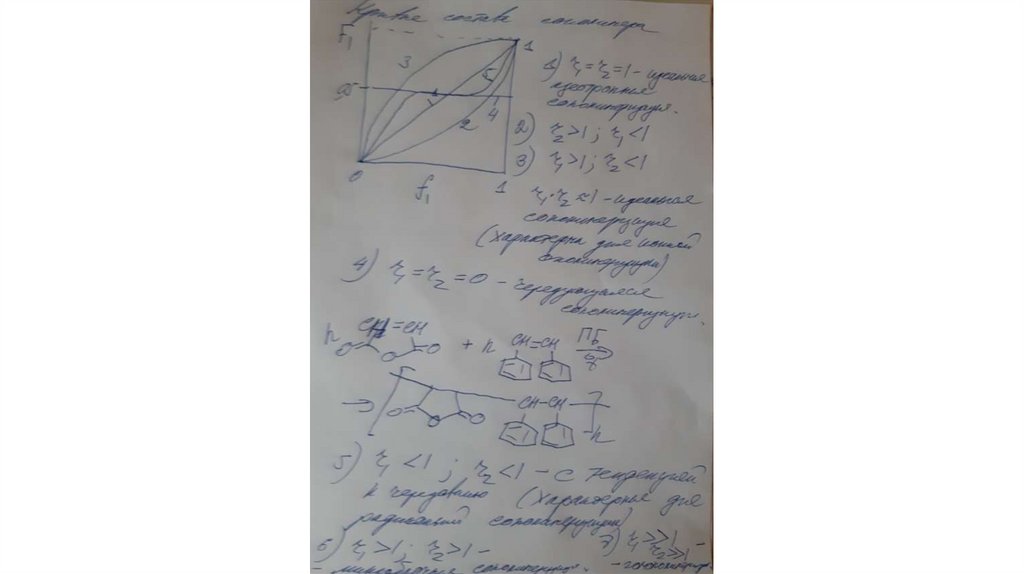 Кривые состава сополимера
F₁
1
3
5
1
0,5
4
2
0
f₁
1
1) r₁ = r₂ = 1 - идеальная
азеотропная
сополимеризация.
2) r₂ > 1; r₁ < 1
3) r₁ > 1; r₂ < 1
r₁·r₂ ≈ 1 - идеальная
сополимеризация
(характерна для ионной
сополимеризации)
4) r₁ = r₂ = 0 - чередующаяся
сополимеризация.
n CH=CH + n CH=CH ПБ
O O O
→ [ CH-CH ]n
O= O O
5) r₁ < 1; r₂ < 1 - с тенденцией
к чередованию (характерные для
радикальной сополимеризации)
6) r₁ > 1; r₂ > 1 -
7) r₁ >> 1 -
r₂ >> 1